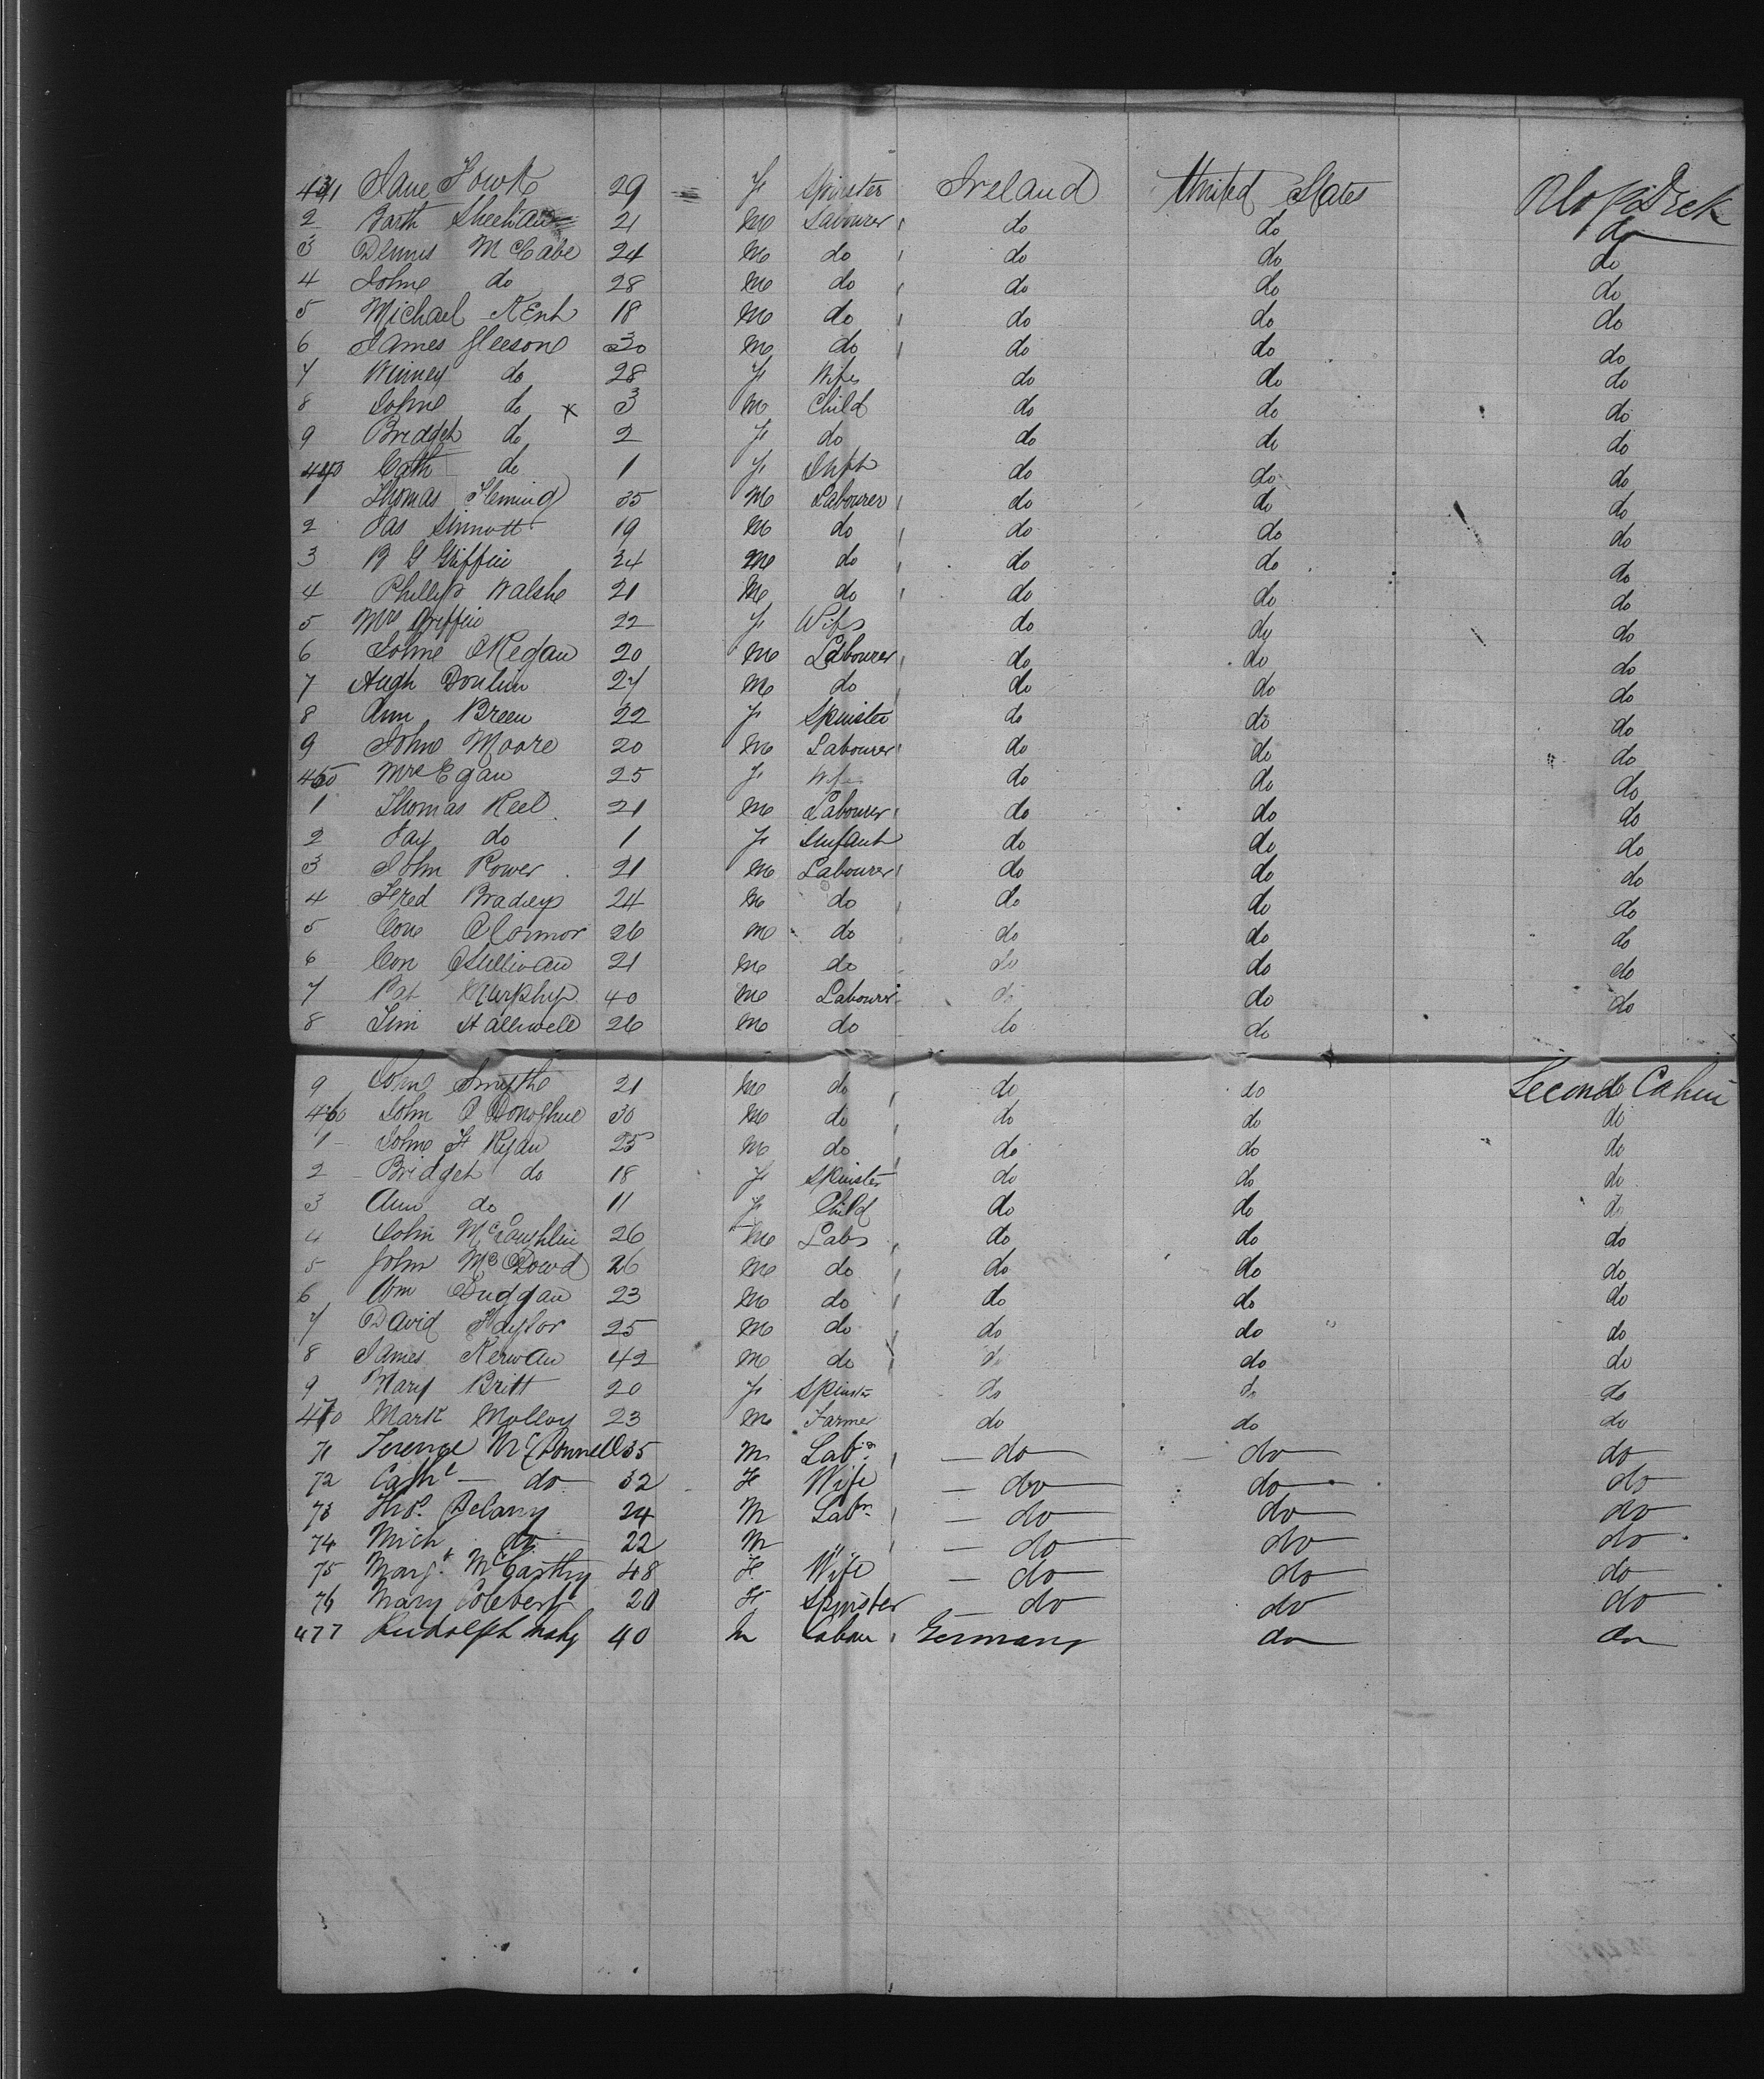 431 Jane 29 F Spinster Ireland United States
2 Barth Sheehan 21 M Labourer do do do
3 Dennis McCabe 24 M do do do do
4 John do 28 M do do do do
5 Michael Kent 18 M do do do do
6 James Gleeson 30 M do do do do
7 Winney do 28 F Wife do do do
8 John do x 3 M Child do do do
9 Bridget do 2 F do do do do
440 Cath do 1 F Inft do do do
1 Thomas Fleming 35 M Labourer do do do
2 Jas Sinnott 19 M do do do do
3 Griffin 24 M do do do do
4 Phillip Walshe 21 M do do do do
5 Mrs Griffin 22 F Wife do do do
6 John ORegan 20 M Labourer do do do
7 Hugh Donlin 27 M do do do do
8 Ann Breen 22 F Spinster do do do
9 John Moore 20 M Labourer do do do
450 Mrs Egan 25 F Wife do do do
1 Thomas Keel 21 M Labourer do do do
2 Fay do 1 F Infant do do do
3 John Power 21 M Labourer do do do
4 Fred Bradley 24 M do do do do
5 Con OConnor 26 M do do do do
6 Con OSullivan 21 M do do do do
7 Pat Murphy 40 M Labourer do do do
8 Jim Halliwell 26 M do do do
9 John Smythe 21 M do do do Second Cabin
460 John O Donoghue 30 M do do do do
1 John H Ryan 25 M do do do do
2 Bridget do 18 F Spinster do do do
3 Ann do 11 F Child do do do
4 John McLaughlin 26 M Labr do do do
5 John McDowd 26 M do do do do
6 Wm Duggan 23 M do do do do
7 David Taylor 25 M do do do do
8 James Kerwan 42 M do do do do
9 Mary Britt 20 F Spinster do do do
470 Mark Molloy 23 M Farmer do do do
71 Terence McConnell 35 M Labr do do do
72 Cathe do 32 F Wife do do do
73 Thos. Delany 24 M Labr do do do
74 Mich do 22 M " do do do
75 Margt McCarthy 48 F Wife do do do
76 Mary Colbert 20 F Spinster do do do
477 Rudolph 40 M Labour Germany do do